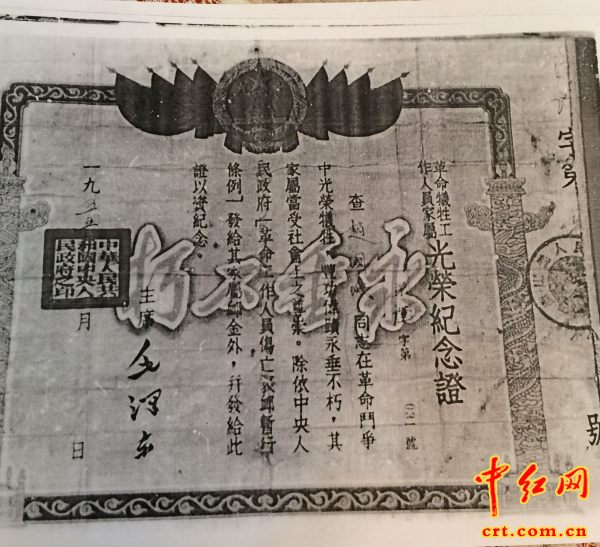 革命犧牲工作人員家屬光榮紀念證
字第〇二一號
查
同志在革命鬥爭
中光榮犧牲，豐功偉績永垂不朽，其
家屬當受社會上之尊崇。除依中央人
民政府「革命工作人員傷亡褒卹暫行
條例」發給其家屬卹金外，幷發給此
證以資紀念。
主席 毛澤東
一九五
月
日
中華人民共和國中央人民政府之印
永垂不朽
字第
號
中红网
crt.com.cn